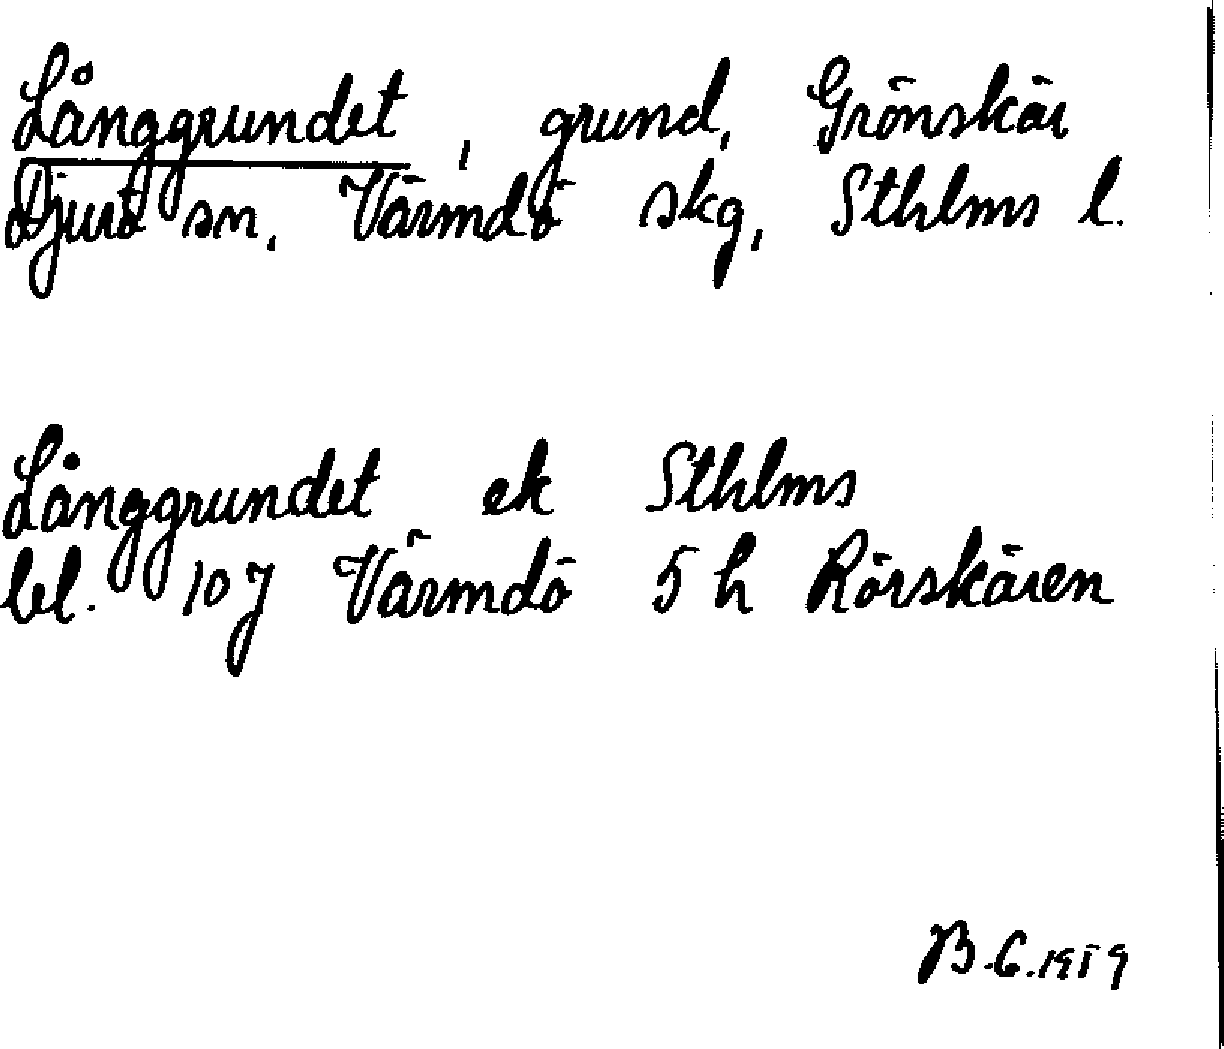 Långgrundet, grund, Grönskär
Djurö sn, Värmdö skg, Sthlms l.
Långgrundet ek Sthlms
bl. 107 Värmdö 5 h Rörskären
B.C. 1959